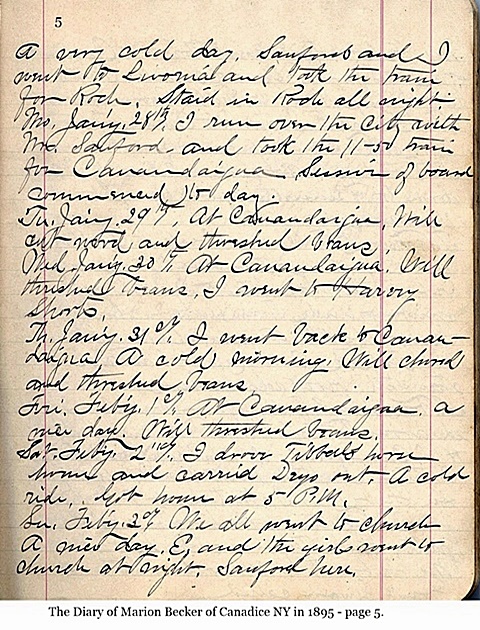 5
A very cold day. Sanford and I
went to Livonia and took the train
for Roch. Staid in Roch all night
Mo. Jan'y. 28th I run over the City with
Mr. Sanford and took the 11-50 train
for Canandaigua Session of board
commenced to day.
Tu. Jan'y 29th, At Canandaigua, Will
cut wood and threshed beans
Wed, Jan'y. 30th At Canandaigua. Will
threshed beans, I went to Harvey
Shorts.
Th. Jan'y. 31st. I went back to Canan-
daigua A cold morning. Will chored
and threshed beans.
Fri. Feb'y. 1st. At Canandaigua. a
nice day. Will threshed beans.
Sat. Feb'y. 2nd. I drove horse
home and carried out. A cold
ride. Got home at 5 P.M.
Su. Feb'y. 3d We all went to church
A nice day. E, and the girls went to
church at night. Sanford here.
The Diary of Marion Becker of Canadice NY in 1895 - page 5.